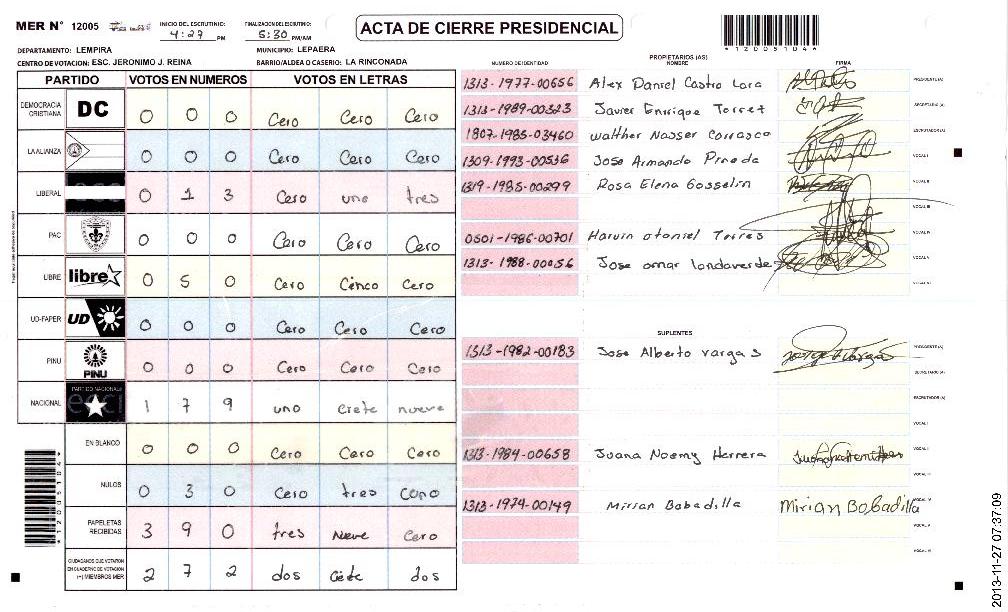 MER N° 12005
INICIO DEL ESCRUTINIO: 4:27 PM
FINALIZACION DEL ESCRUTINIO: 5:30 PM/AM
ACTA DE CIERRE PRESIDENCIAL
*12005104*
DEPARTAMENTO: LEMPIRA
MUNICIPIO: LEPAERA
CENTRO DE VOTACION: ESC. JERONIMO J. REINA
BARRIO/ALDEA O CASERIO: LA RINCONADA
PARTIDO VOTOS EN NUMEROS VOTOS EN LETRAS
DEMOCRACIA CRISTIANA DC 0 0 0 Cero Cero Cero
LA ALIANZA 0 0 0 Cero Cero Cero
LIBERAL 0 1 3 Cero uno tres
PAC 0 0 0 Cero Cero Cero
LIBRE libre 0 5 0 Cero Cinco Cero
UD-FAPER UD 0 0 0 Cero Cero Cero
PINU PINU 0 0 0 Cero Cero Cero
NACIONAL PARTIDO NACIONAL 1 7 9 uno Ciete nueve
EN BLANCO 0 0 0 Cero Cero Cero
NULOS 0 3 0 Cero tres
PAPELETAS RECIBIDAS 3 9 0 tres Nueve Cero
CIUDADANOS QUE VOTARON EN CUADERNO DE VOTACION (+) MIEMBROS MER 2 7 2 dos Ciete dos
*12005104*
NUMERO DE IDENTIDAD PROPIETARIOS (AS) NOMBRE FIRMA
1313-1977-00656 Alex Daniel Castro Lara PRESIDENTE(A)
1313-1989-00323 Javier Enrique Torrez SECRETARIO(A)
1807-1985-03460 Walther Nasser Carrasco ESCRUTADOR(A)
1309-1993-00536 Jose Armando Pineda VOCAL I
1319-1985-00299 Rosa Elena Gosselin VOCAL II
VOCAL III
0501-1986-00701 Harvin otoniel Torres VOCAL IV
1313-1988-00056 Jose omar landaverde VOCAL V
VOCAL VI
SUPLENTES
1313-1982-00183 Jose Alberto vargas PRESIDENTE(A)
SECRETARIO(A)
ESCRUTADOR(A)
VOCAL I
1313-1984-00658 Juana Noemy Herrera VOCAL II
VOCAL III
1313-1974-00149 Mirian Bobadilla Mirian Bobadilla VOCAL IV
VOCAL V
VOCAL VI
2013-11-27 07:37:09